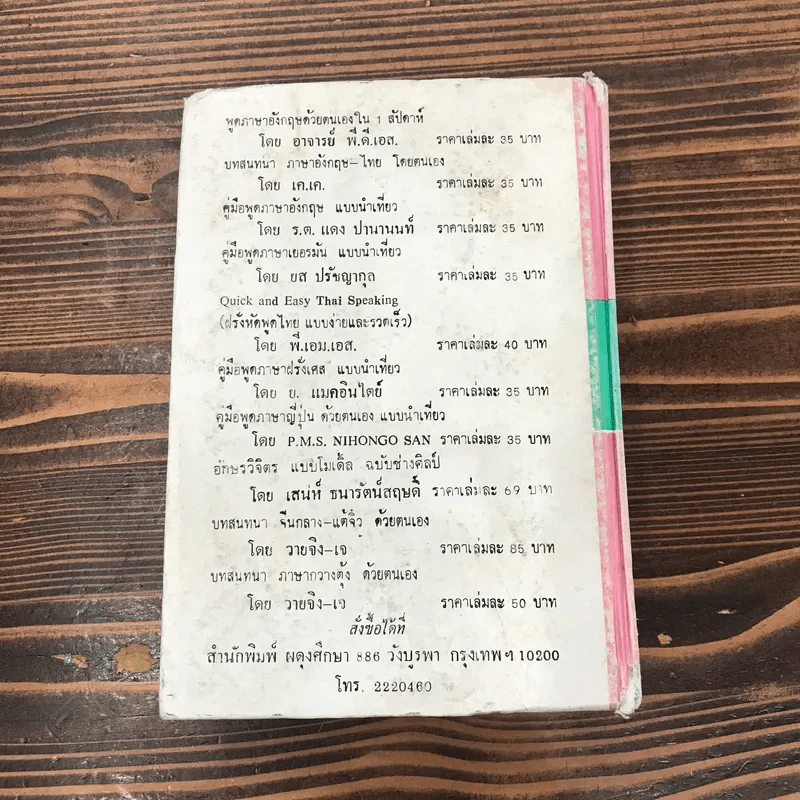 พูดภาษาอังกฤษด้วยตนเองใน 1 สัปดาห์
โดย อาจารย์ พี.ดี.เอส. ราคาเล่มละ 35 บาท
บทสนทนา ภาษาอังกฤษ-ไทย โดยตนเอง
โดย เค.เค. ราคาเล่มละ 35 บาท
คู่มือพูดภาษาอังกฤษ แบบนำเที่ยว
โดย ร.ต. แดง ปานานนท์ ราคาเล่มละ 35 บาท
คู่มือพูดภาษาเยอรมัน แบบนำเที่ยว
โดย ยส ปรัชญากุล ราคาเล่มละ 35 บาท
Quick and Easy Thai Speaking
(ฝรั่งหัดพูดไทย แบบง่ายและรวดเร็ว)
โดย พี.เอม.เอส. ราคาเล่มละ 40 บาท
คู่มือพูดภาษาฝรั่งเศส แบบนำเที่ยว
โดย ย. แมคอินไตย์ ราคาเล่มละ 35 บาท
คู่มือพูดภาษาญี่ปุ่น ด้วยตนเอง แบบนำเที่ยว
โดย P.M.S. NIHONGO SAN ราคาเล่มละ 35 บาท
อักษรวิจิตร แบบโมเดิล ฉบับช่างศิลป์
โดย เสน่ห์ ธนารัตน์สฤษดิ์ ราคาเล่มละ 69 บาท
บทสนทนา จีนกลาง-แต้จิ๋ว ด้วยตนเอง
โดย วายจิง-เจ ราคาเล่มละ 85 บาท
บทสนทนา ภาษากวางตุ้ง ด้วยตนเอง
โดย วายจิง-เจ ราคาเล่มละ 50 บาท
สั่งซื้อได้ที่
สำนักพิมพ์ ผดุงศึกษา 886 วังบูรพา กรุงเทพฯ 10200
โทร. 2220460